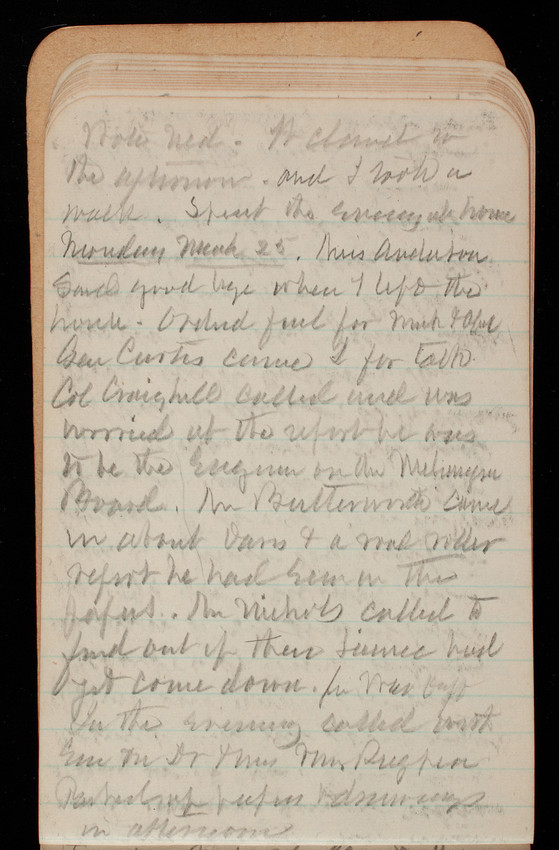 Note Ned. It cleared in
the afternoon. and I took a
walk. Spent the evening at home
Monday March 25. Miss Anderson
said good bye when I left the
house. Ordered fuel for March & Apl
Gen Curtis came for talk
Col Craighill called and was
worried at the report he was
to be the Engineer on the
Board. Mr Butterworth came
in about Davis & a
report he had seen in the
papers. Mr Nichols called to
find out if their had
yet come down. in War Dept
In the evening called with
Em on Dr & Mrs
up papers & drawings
in afternoon